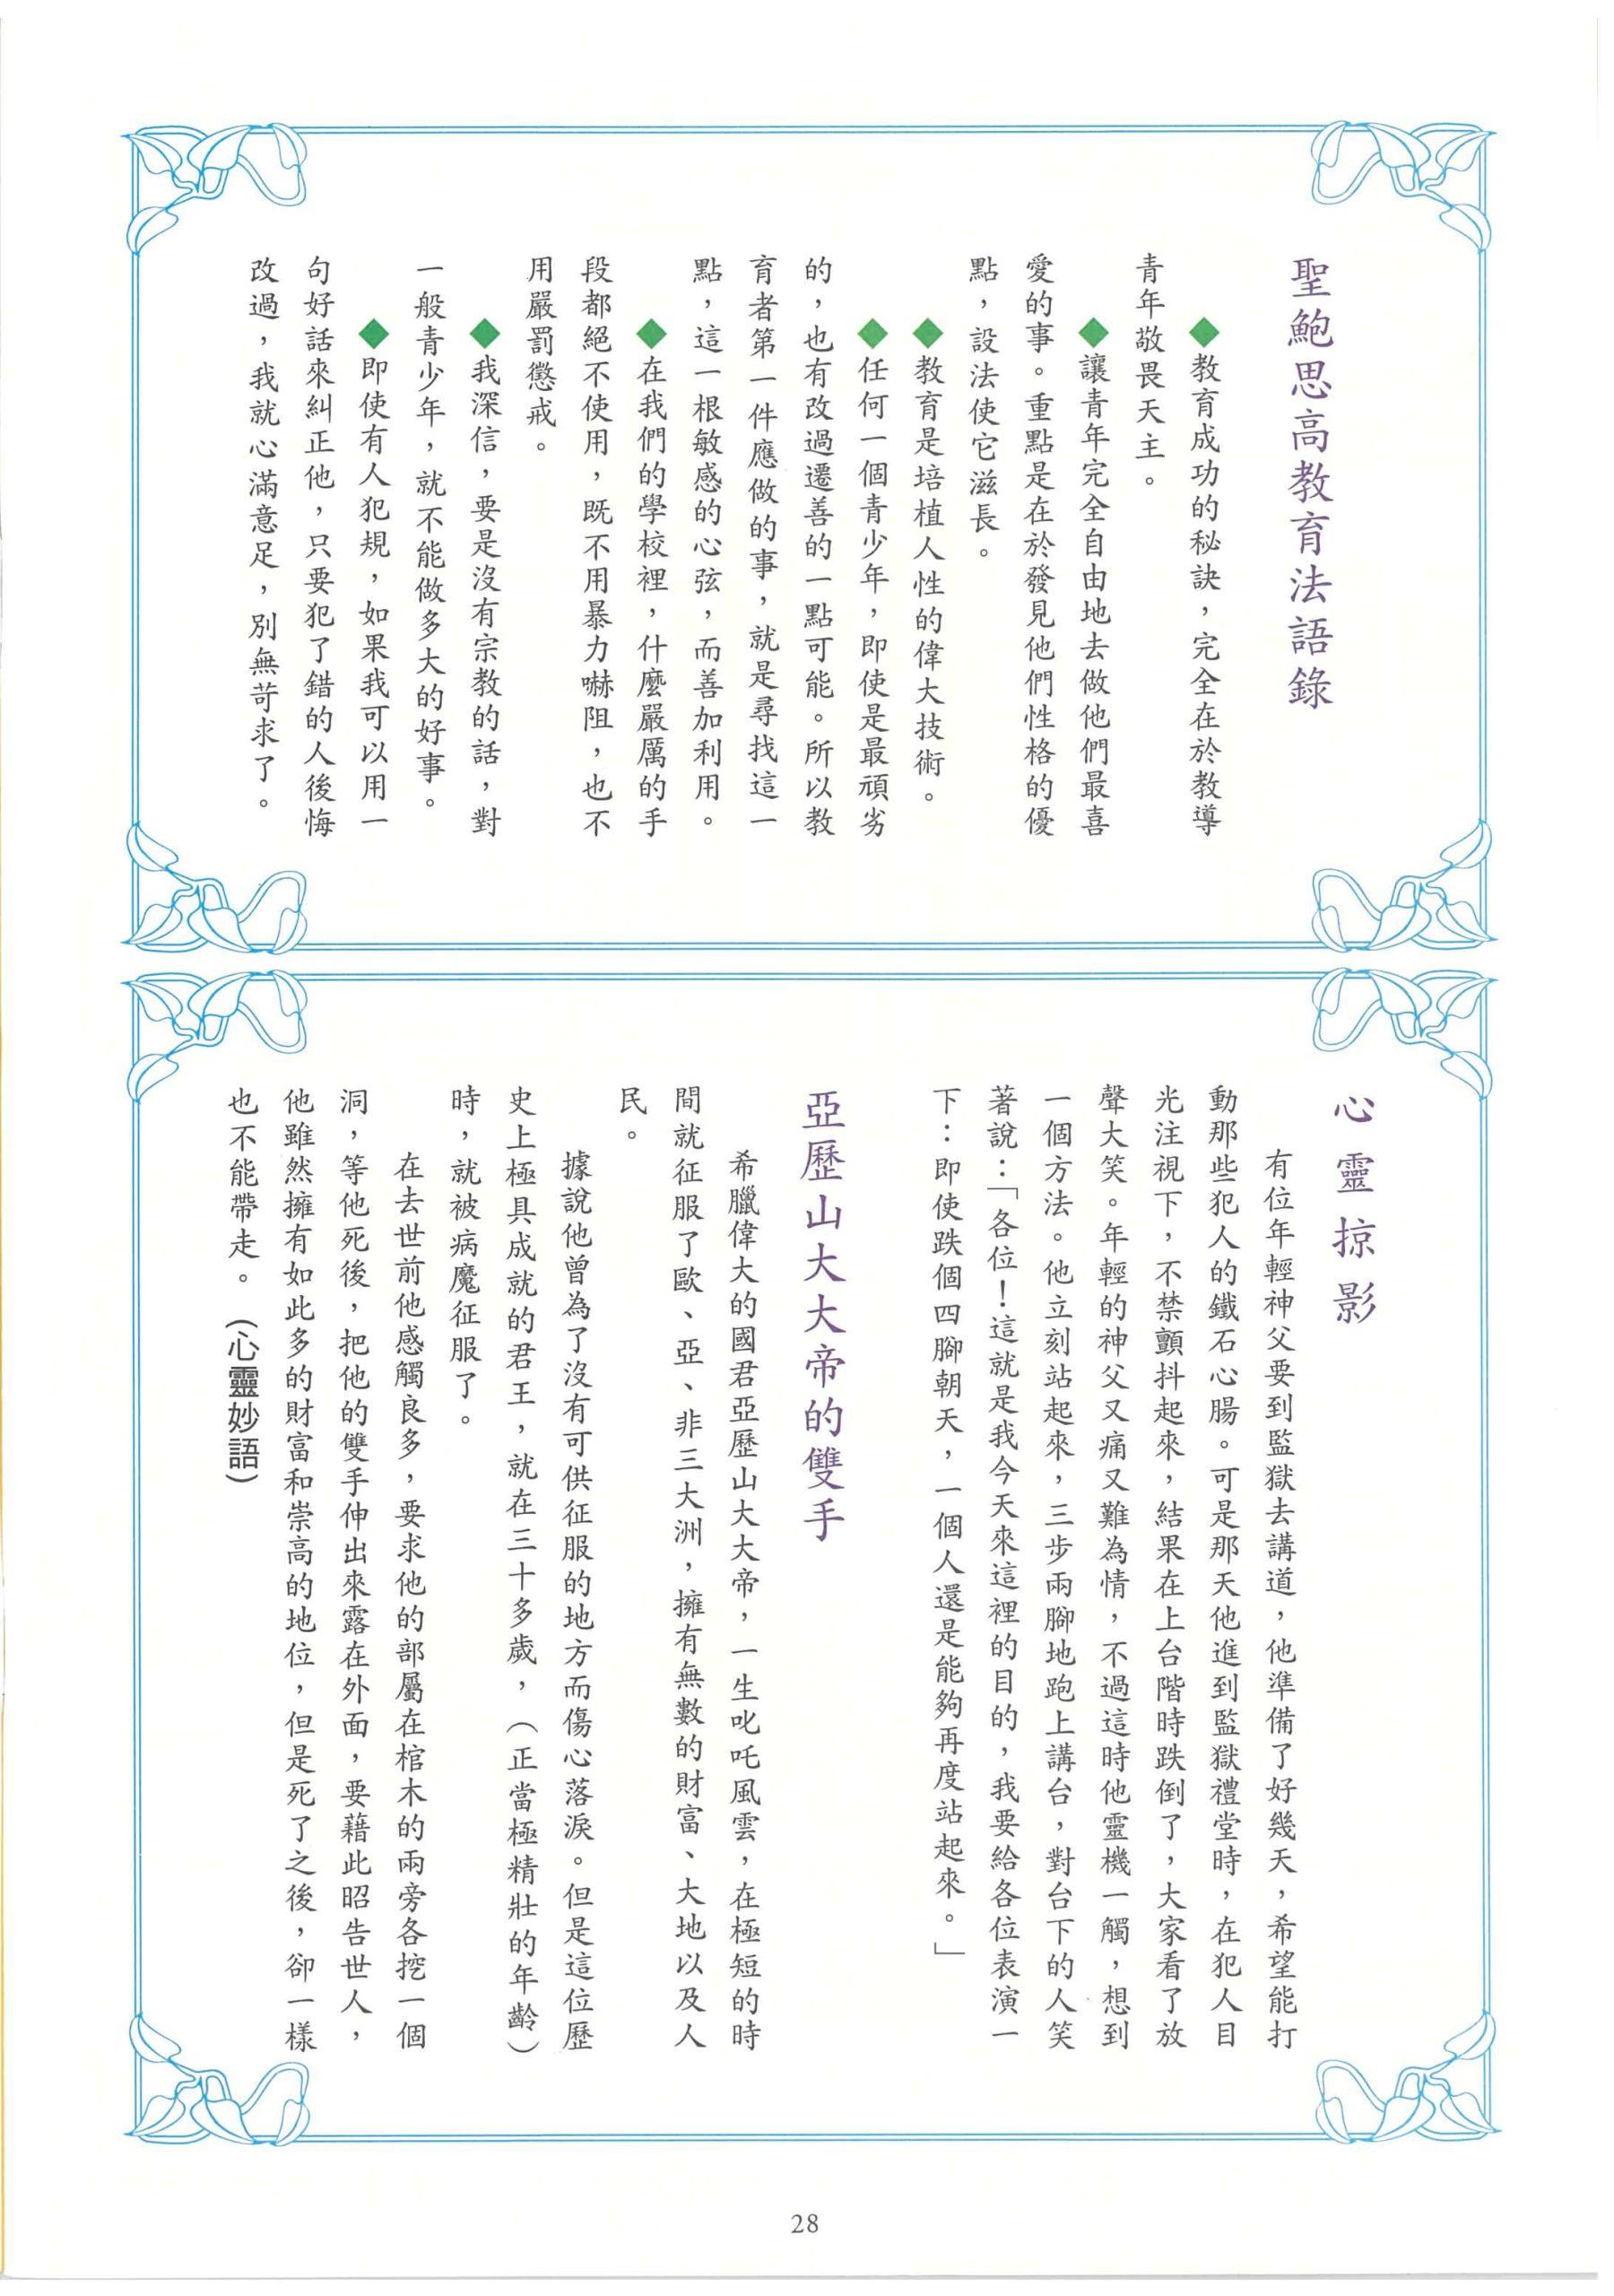 聖鮑思高教育法語錄
◆教育成功的秘訣，完全在於教導
青年敬畏天主。
◆讓青年完全自由地去做他們最喜
愛的事。重點是在於發見他們性格的優
點，設法使它滋長。
◆教育是培植人性的偉大技術。
◆任何一個青少年，即使是最頑劣
的，也有改過遷善的一點可能。所以教
育者第一件應做的事，就是尋找這一
點，這一根敏感的心弦，而善加利用。
◆在我們的學校裡，什麼嚴厲的手
段都絕不使用，既不用暴力嚇阻，也不
用嚴罰懲戒。
◆我深信，要是沒有宗教的話，對
一般青少年，就不能做多大的好事。
◆即使有人犯規，如果我可以用一
句好話來糾正他，只要犯了錯的人後悔
改過，我就心滿意足，別無苛求了。
心靈掠影
有位年輕神父要到監獄去講道，他準備了好幾天，希望能打
動那些犯人的鐵石心腸。可是那天他進到監獄禮堂時，在犯人目
光注視下，不禁顫抖起來，結果在上台階時跌倒了，大家看了放
聲大笑。年輕的神父又痛又難為情，不過這時他靈機一觸，想到
一個方法。他立刻站起來，三步兩腳地跑上講台，對台下的人笑
著說：「各位！這就是我今天來這裡的目的，我要給各位表演一
下：即使跌個四腳朝天，一個人還是能夠再度站起來。」
亞歷山大大帝的雙手
希臘偉大的國君亞歷山大大帝，一生叱吒風雲，在極短的時
間就征服了歐、亞、非三大洲，擁有無數的財富、大地以及人
民。
據說他曾為了沒有可供征服的地方而傷心落淚。但是這位歷
史上極具成就的君王，就在三十多歲，（正當極精壯的年齡）
時，就被病魔征服了。
在去世前他感觸良多，要求他的部屬在棺木的兩旁各挖一個
洞，等他死後，把他的雙手伸出來露在外面，要藉此昭告世人，
他雖然擁有如此多的財富和崇高的地位，但是死了之後，卻一樣
也不能帶走。（心靈妙語）
28